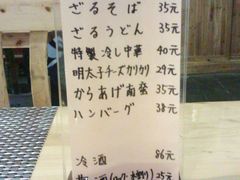 ざるそば 35元
ざるうどん 35元
特製冷し中華 40元
明太子チーズカリカリ 29元
からあげ南蛮 35元
ハンバーグ 38元
冷酒 86元
35元